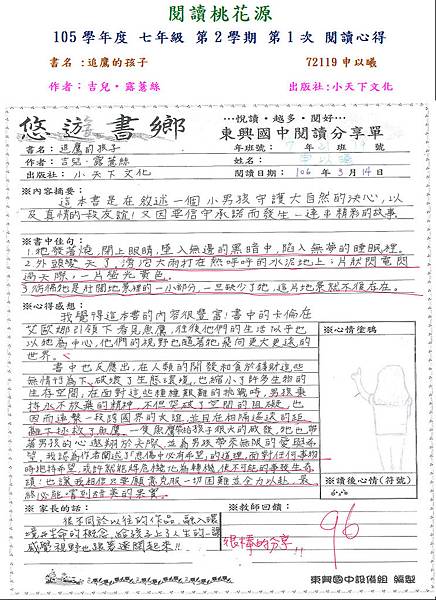 閱讀桃花源
105 學年度 七年級 第 2 學期 第 1 次 閱讀心得
書名 :追鷹的孩子 72119 申以曦
作者：吉兒‧露薏絲 出版社:小天下文化
悠遊書鄉
…悅讀‧越多‧閱好…
東興國中閱讀分享單
書名：追鷹的孩子 年班號：7
作者：吉兒‧露薏絲 姓名：申以曦
出版社：小天下文化 閱讀日期：106 年 3 月 14 日
※內容摘要：
這本書是在敘述一個小男孩守護大自然的決心，以
及真情的一段友誼！又因要信守承諾而發生一連串精彩的故事。
※書中佳句：
1.他發著燒，閉上眼睛，墜入無邊的黑暗中，陷入無夢的睡眠裡。
2.外頭變天了，滂沱大雨打在熱呼呼的水泥地上；片狀閃電閃
過天際，一片螢光黃色。
3.彷彿牠是壯闊地景裡的一小部分，一旦缺少了牠，這片地景就不復存在。
※心得感想：
我覺得這本書的內容很豐富！書中的卡倫在
艾歐娜引領下看見魚鷹，往後他們的生活似乎也
以牠為中心，他們的視野也隨著牠飛向更大更遠的
世界。
書中也反應出，在人類的開發和貪於錢財這些
無情行為下，破壞了生態環境，也縮小了許多生物的
生存空間，在面對這些種種艱難的挑戰時，男孩秉
持永不放棄的精神，不但突破了空間的阻礙，也
因而造就一段跨國界的友誼，並且在相隔遙遠的距
離下拯救了魚鷹。一隻魚鷹帶給孩子很大的啟發，牠也帶
著男孩的心遨翔於天際，並為男孩帶來無限的愛與希
望，我認為作者闡述了「悲傷中必有希望」的道理，面對任何事物
時抱持希望，或許就能將危機化為轉機，使不可能的事發生奇
蹟！也讓我相信只要願意克服一切困難並全力以赴，最
終必能嘗到結果的果實。
※心情塗鴉
※讀後心情(符號)
※家長的話：
很不同於以往的作品，融入環
境與生命的概念，給孩子上了人生的一課
感覺視野也跟著遼闊起來!!
※教師回饋：
很棒的分享!!
96
東興國中設備組 編製